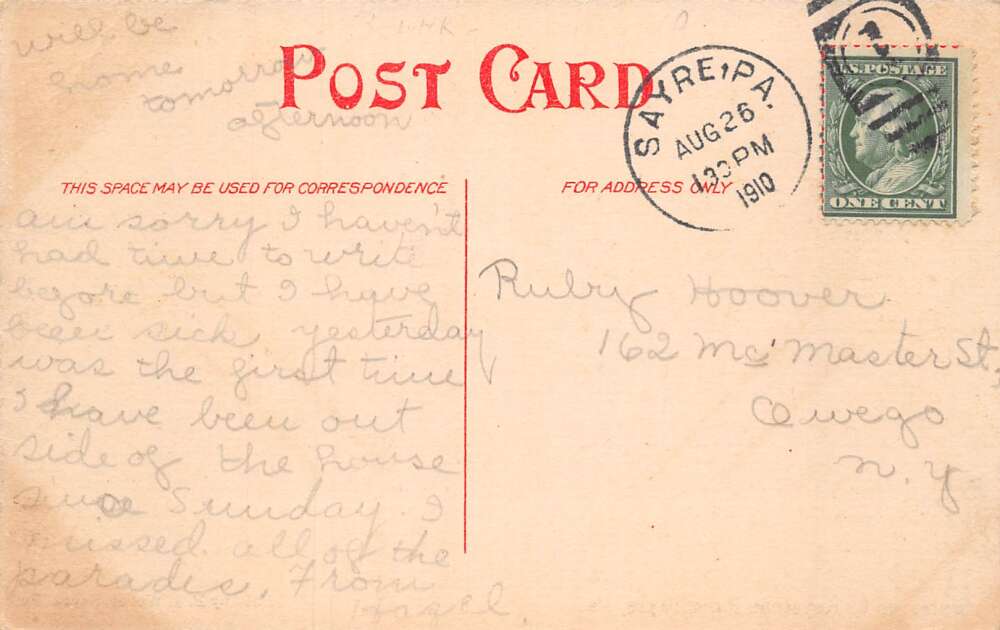 will be
home
tomorrow
afternoon
POST CARD
SAYRE, PA.
AUG 26
1910
U.S. POSTAGE
ONE CENT
THIS SPACE MAY BE USED FOR CORRESPONDENCE
FOR ADDRESS ONLY
am sorry I haven't
had time to write
before but I have
been sick yesterday
was the first time
I have been out
side of the house
since Sunday. I
missed all of the
parades. From
Ruby Hoover
162 Mc'Master St.
Owego
N. Y